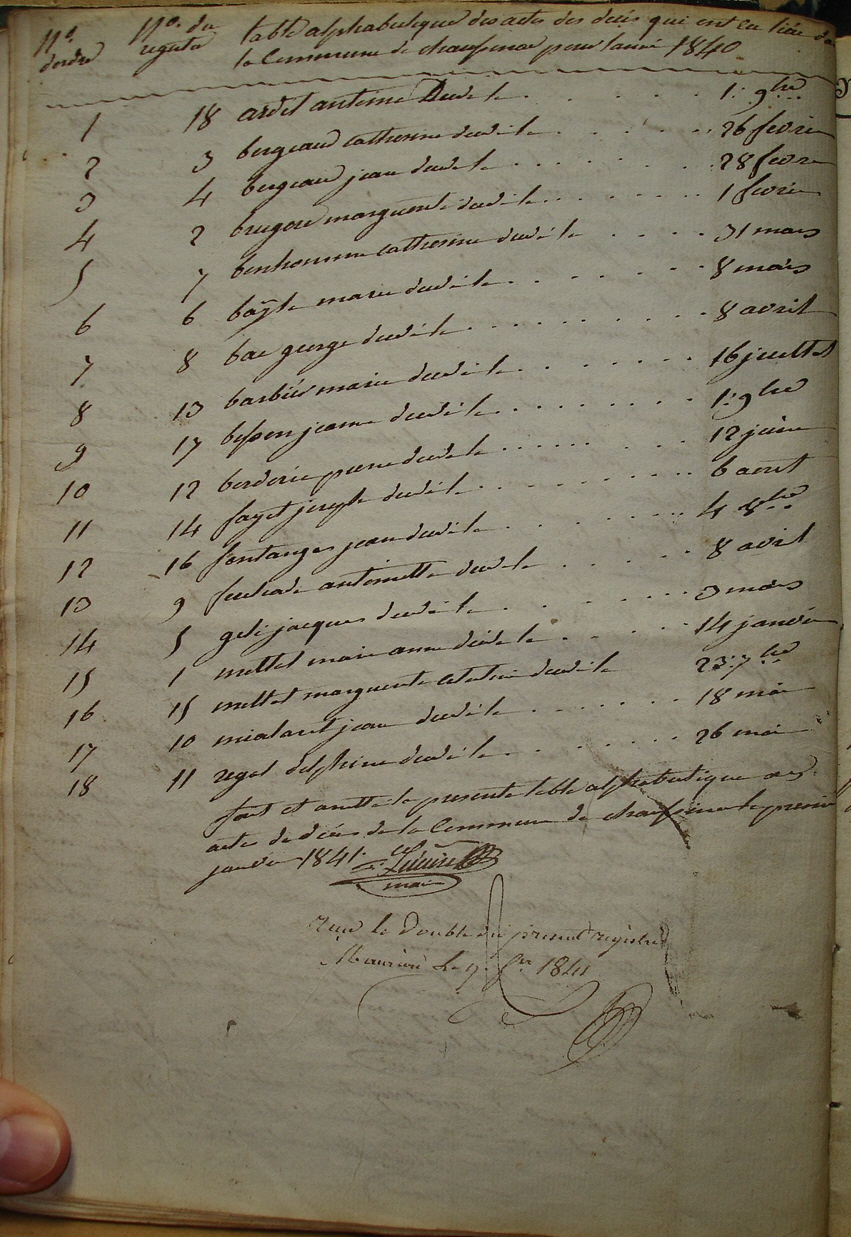 N.o d'ordre N.o du registre table alphabetique des actes des décès qui ont eu lieu da
la Commune de chaussenac pour l'année 1840
1 18 ardit antoine Decede le 1. 9bre
2 3 bergeaud catherine decede le 26 fevrier
3 4 bergeaud jean decede le 28 fevrie
4 2 marguerite decede le 1 fevrier
5 7 bonhomme catherine decede le 31 mars
6 6 bayle marie decede le 8 mars
7 8 bac george decede le 8 avril
8 13 barbier marie decede le 16 juillet
9 17 besson jeanne decede le 1. 9bre
10 12 borderie pierre decede le 12 juin
11 14 fayet joseph decede le 6 aout
12 16 fontanges jean decede le 4 8bre
13 9 antoinette decede le 8 avril
14 5 jacques decede le 3 mars
15 1 mettet marie anne decede le 14 janvier
16 15 mettet marguerite decede le 23. 7bre
17 10 mialaret jean decede le 18 mai
18 11 delphine decede le 26 mai
fait et arretté la presente table alphabetique des
acte de décés de la Commune de chaussenac le premier
janvier 1841.
maire
le double du present registre
Mauriac le 9. 1841